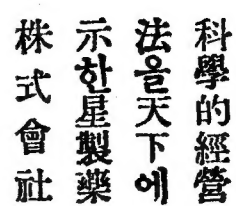 科學的經營
法을天下에
示한星製藥
株式會社